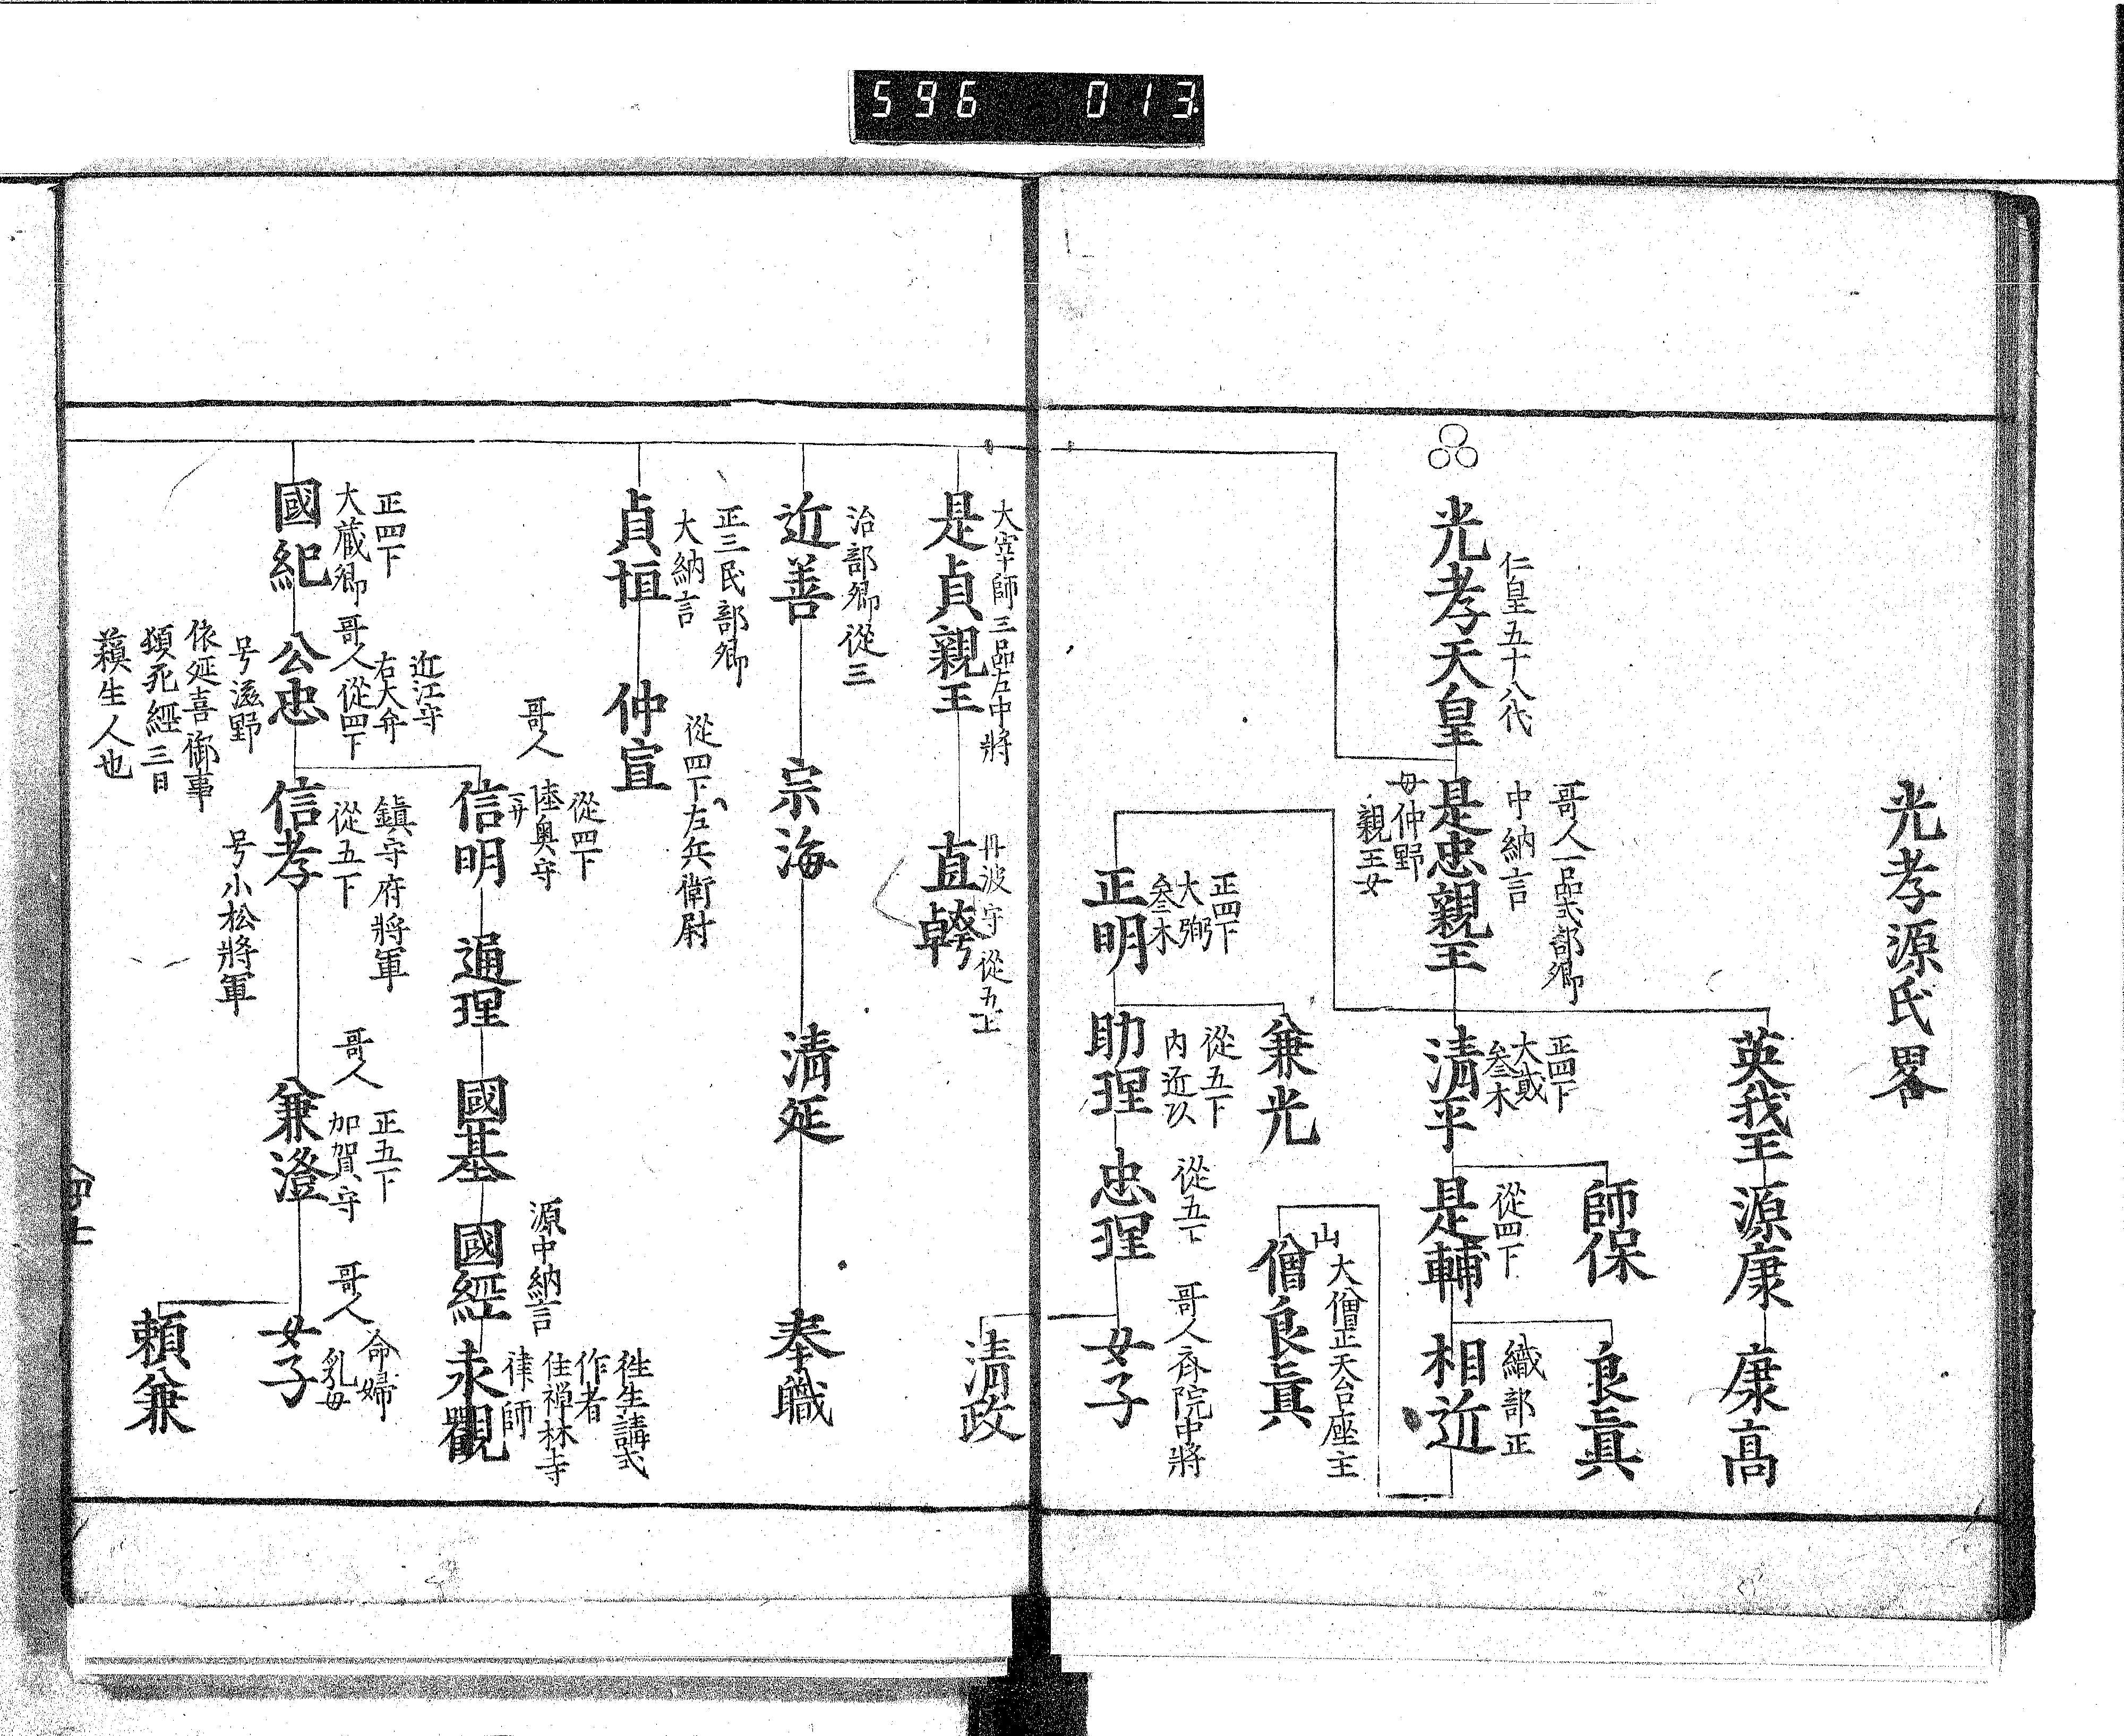 596 013
光孝源氏畧
光孝天皇
仁皇五十八代
哥人一品式部卿
中納言
是忠親王
母仲野
親王女
英我王
源康
康高
正四下
大貳
叅木
清平
師保
從四下
是輔
良眞
織部正
相近
山大僧正天台座主
僧良眞
正四下
大弼
叅木
正明
兼光
從五下
内近以
助理
從五下
忠理
哥人斎院中將
女子
清政
大宰師三品左中將
是貞親王
丹波守從五上
直
治部卿從三
近善
宗海
清延
奉職
正三民部卿
大納言
貞恒
從四下左兵衛尉
仲宣
正四下
大蔵卿
國紀
近江守
右大弁
哥人從四下
公忠
号滋野
依延喜御事
頓死經三日
蘓生人也
哥人
從四下
陸奥守
信明
通理
國基
源中納言
國經
徃生講式
作者
住禅林寺
律師
永觀
鎮守府將軍
從五下
信孝
号小松將軍
哥人
正五下
加賀守
兼澄
哥人
命婦
乳母
女子
頼兼